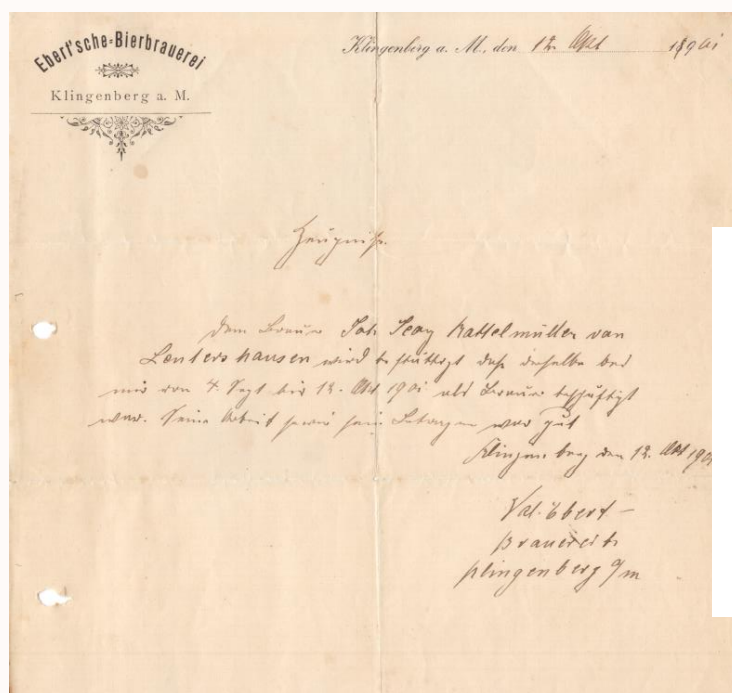 Ebert'sche-Bierbrauerei
Klingenberg a. M.
Klingenberg a. M., den 12. Okt 1901
Zeugniß.
Dem Brauer Joh Georg Kattelmüller von
Leutershausen wird bestättigt daß derselbe bei
mir von 4. Sept bis 12. Okt 1901 als Brauer beschäftigt
war. Seine Arbeit sowie sein Betragen war gut
Klingenberg den 12. Okt 190
Val. Ebert
Klingenberg a/m